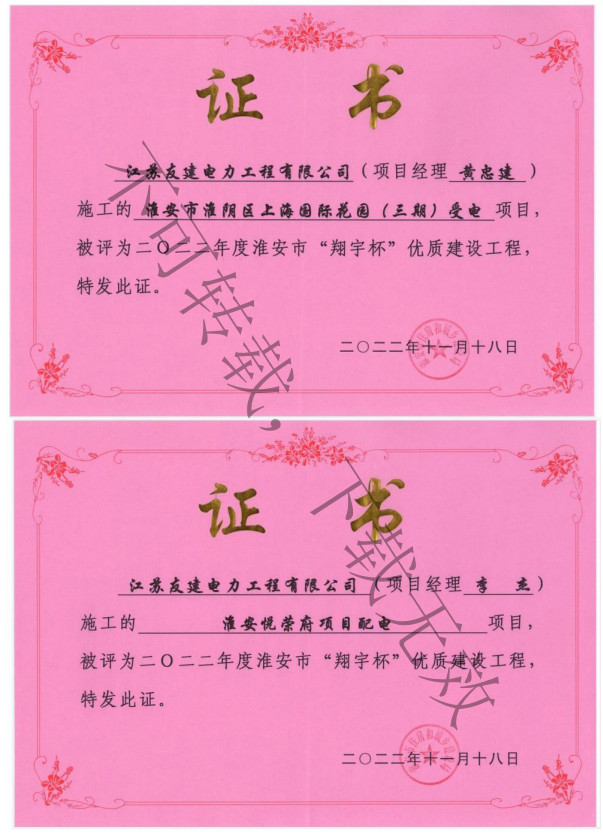 证 书
江苏友建电力工程有限公司（项目经理 黄忠建 ）
施工的 淮安市淮阴区上海国际花园（三期）受电 项目，
被评为二〇二二年度淮安市“翔宇杯”优质建设工程，
特发此证。
二〇二二年十一月十八日
证 书
江苏友建电力工程有限公司（项目经理 李 杰）
施工的 淮安悦荣府项目配电 项目，
被评为二〇二二年度淮安市“翔宇杯”优质建设工程，
特发此证。
二〇二二年十一月十八日
不可转载，下载无效